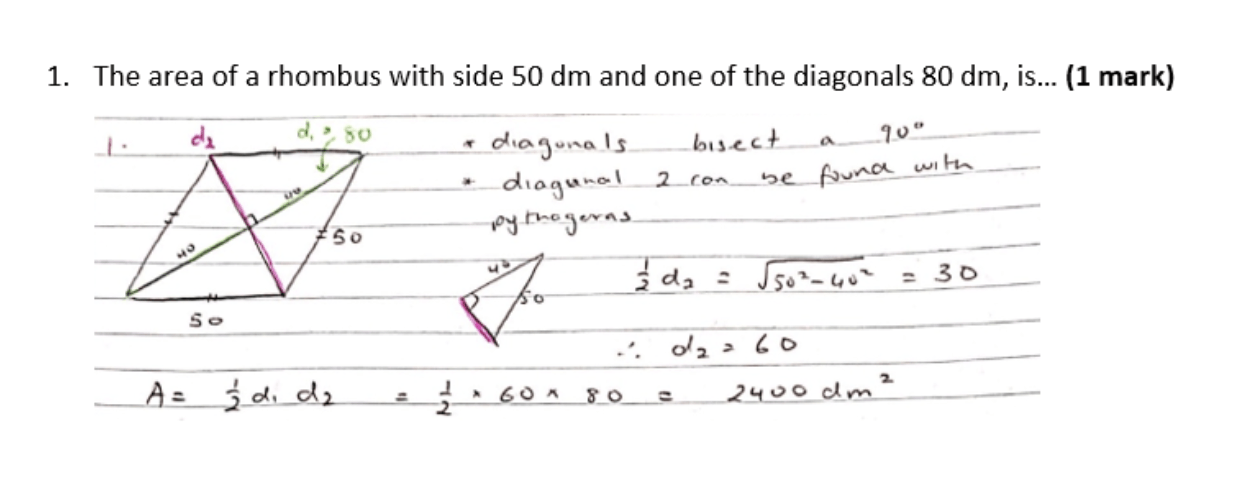 1. The area of a rhombus with side 50 dm and one of the diagonals 80 dm, is... (1 mark)
1. d₂ d₁ = 80
* diagonals bisect a 90°
40
* diagonal 2 can be found with
pythagoras
40 50
40 ½ d₂ = √50²-40² = 30
50
50
∴ d₂ = 60
A = ½ d₁ d₂ = ½ × 60 × 80 = 2400 dm²